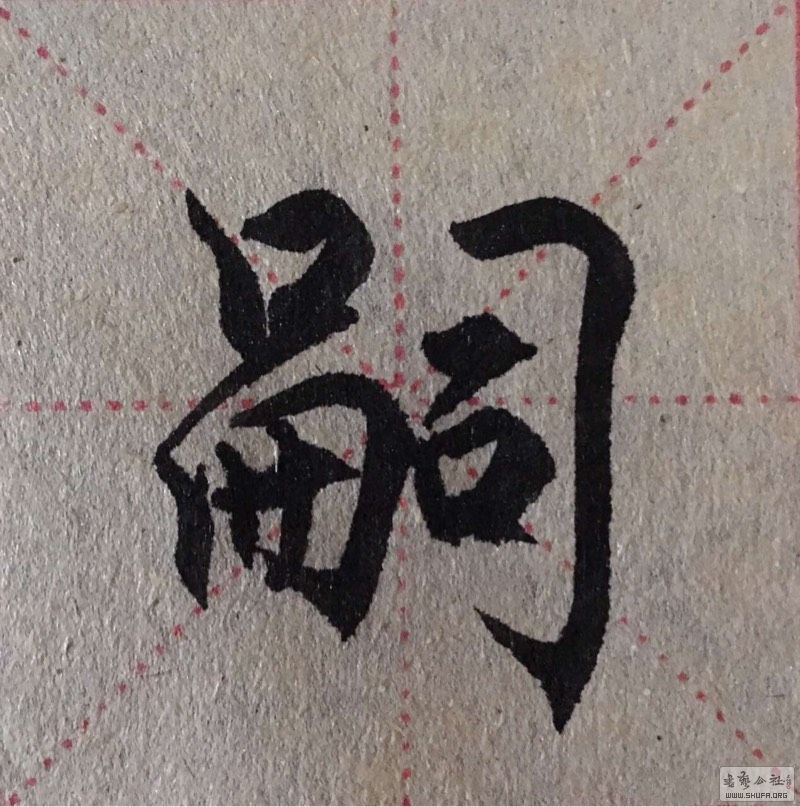 嗣
書艺公社
WWW.SHUFA.ORG